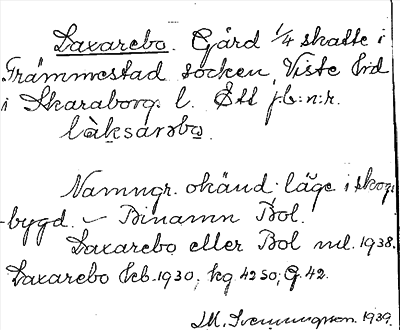 Laxarebo. Gård 1/4 skatte i
Främmestad socken, Viste hrd
i Skaraborgs l. Ett jb:n:r.
làksarəbo.
Namngr. okänd; läge i skogs
-bygd. – Binamn Bol.
Laxarebo eller Bol ml. 1938.
Laxarebo Feb. 1930; kg 4250; G. 42.
M. Svenungson. 1939.